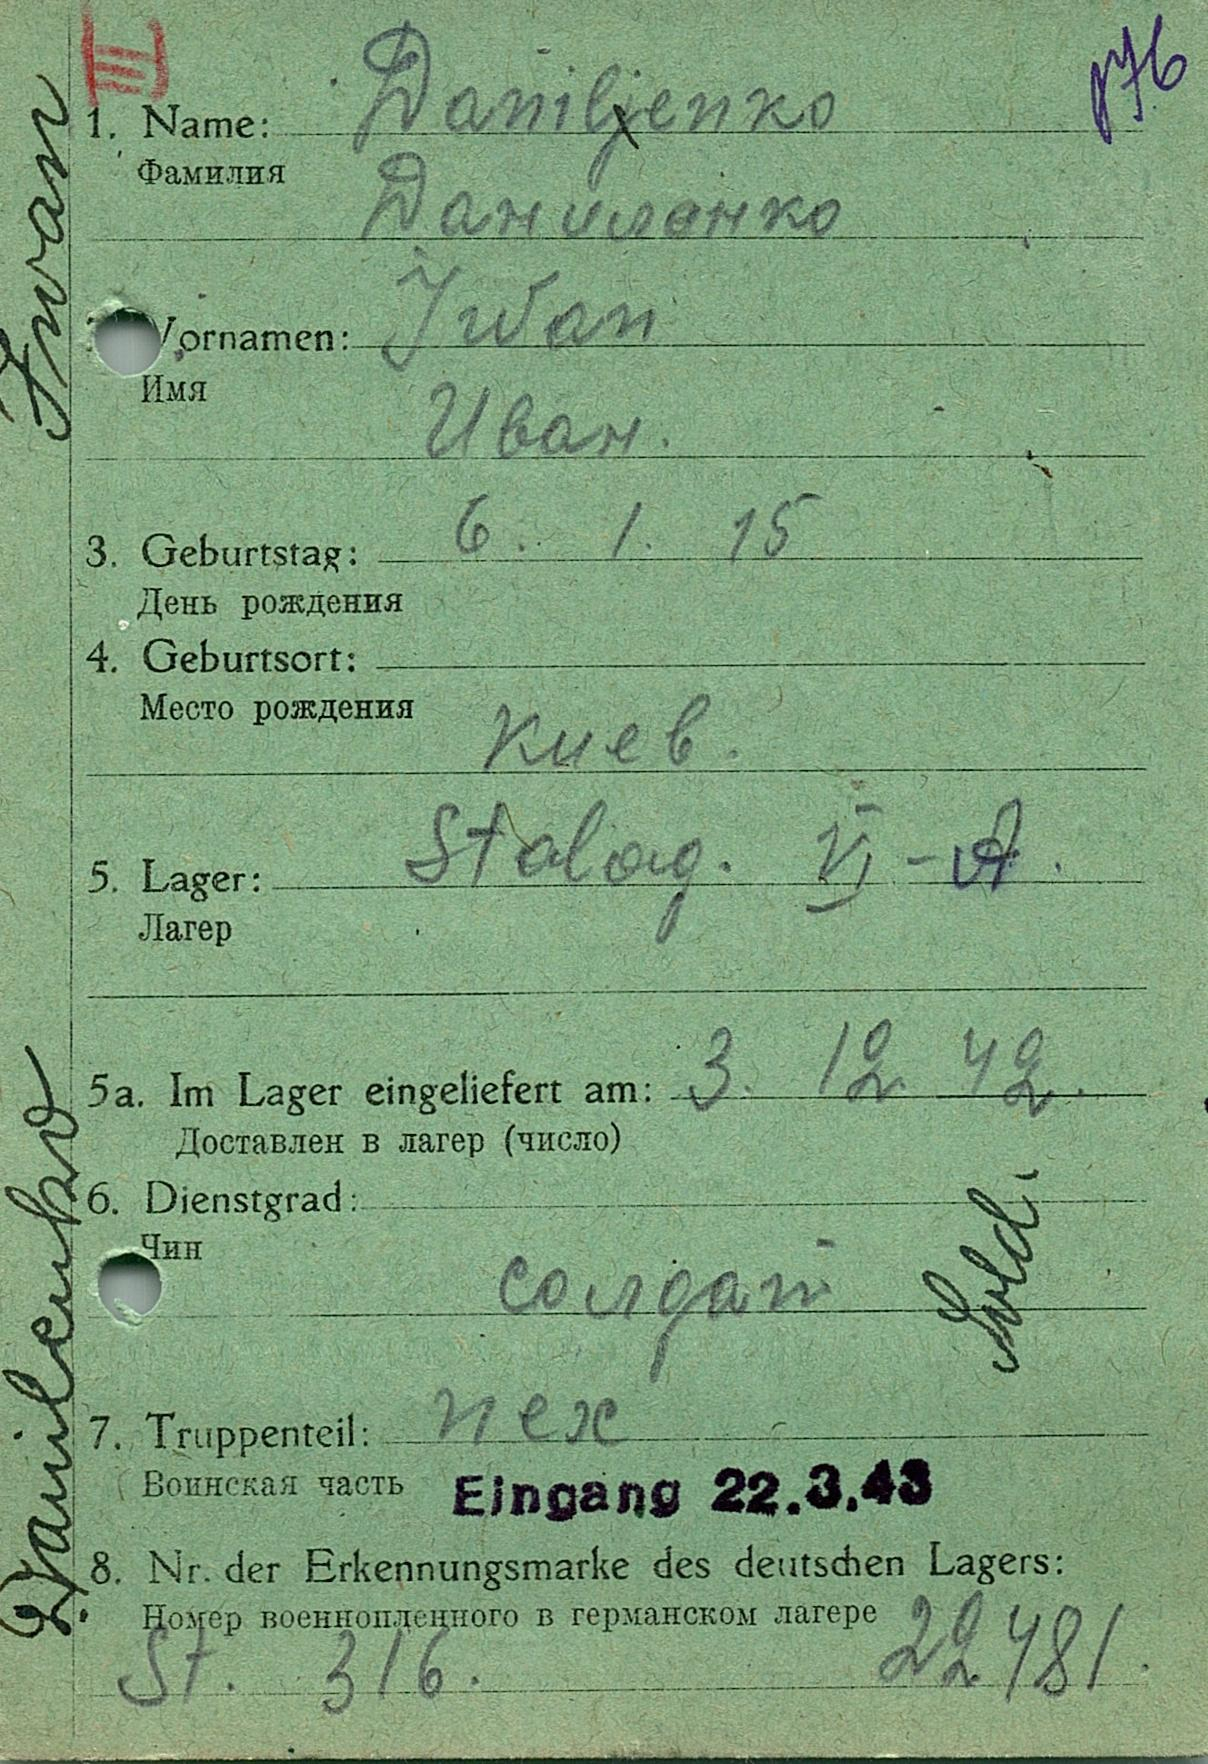 876
1. Name: Daniljenko
Фамилия
Даниленко
Vornamen: Iwan
Имя
Иван.
3. Geburtstag: 6. 1. 15
День рождения
4. Geburtsort:
Место рождения
Киев.
5. Lager: Stalag. VI-A.
Лагер
5a. Im Lager eingeliefert am: 3. 12 42.
Доставлен в лагер (число)
6. Dienstgrad:
Чин
солдат
Sold.
7. Truppenteil: пех
Воинская часть
Eingang 22.3.43
8. Nr. der Erkennungsmarke des deutschen Lagers:
Номер военнопленного в германском лагере
St. 316. 22481.
Danilenko Iwan